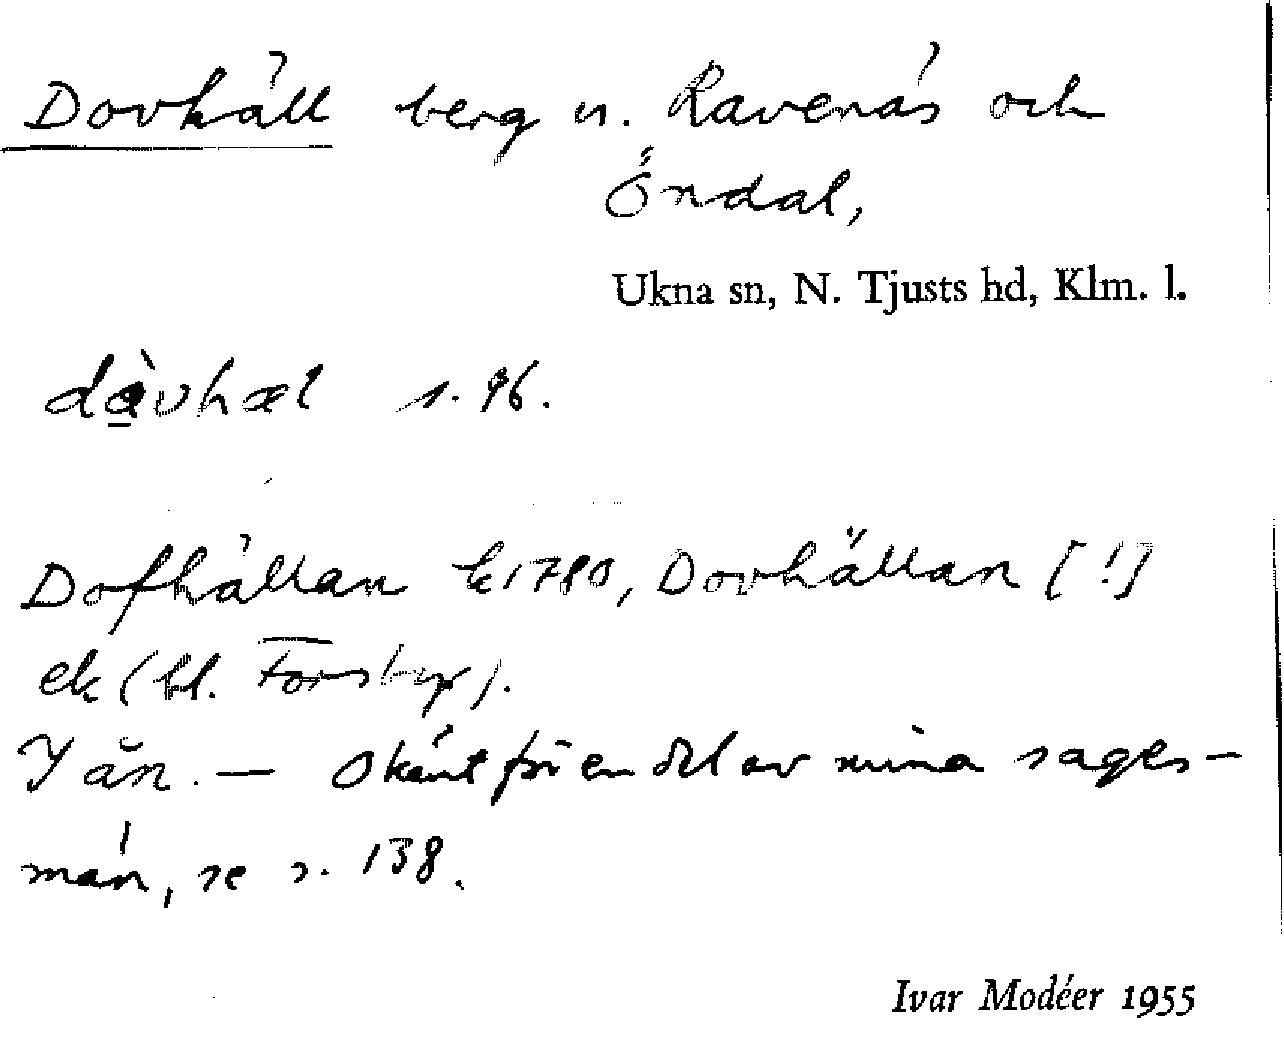 Dovhäll berg n. Ravenäs och
Öndal,
Ukna sn, N. Tjusts hd, Klm. l.
dàvhæl s. 96.
Dofhällan k1780, Dovhällan [!]
ek (bl. Forsby).
Y än. — Okänt för en del av mina sages-
män, se s. 138.
Ivar Modéer 1955